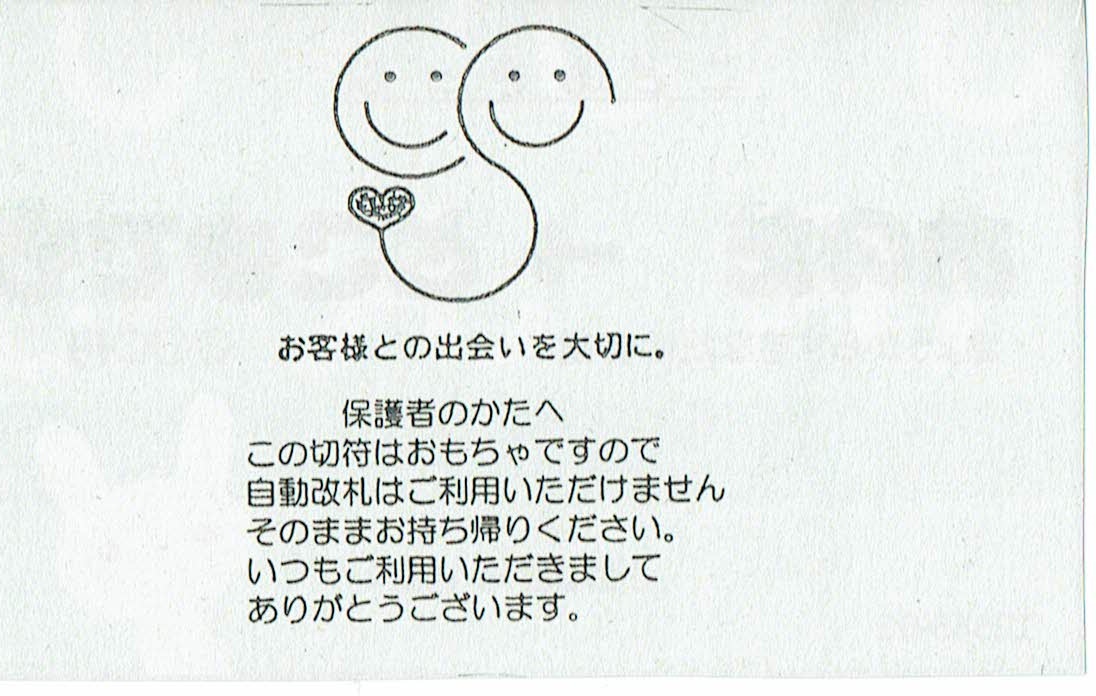 お客様との出会いを大切に。
保護者のかたへ
この切符はおもちゃですので
自動改札はご利用いただけません
そのままお持ち帰りください。
いつもご利用いただきまして
ありがとうございます。